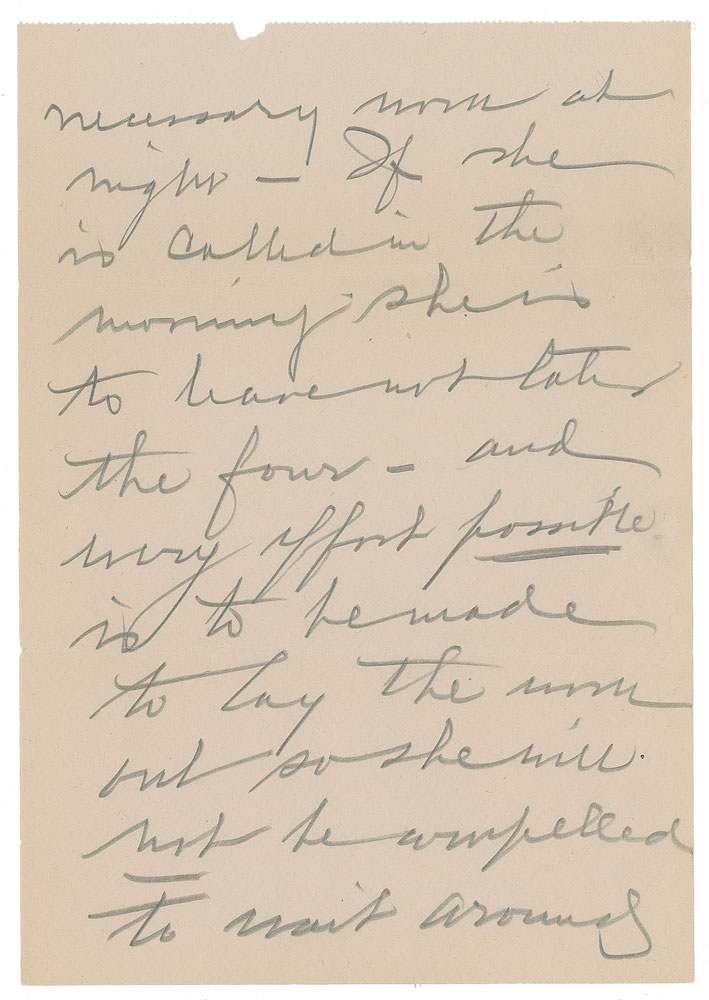 necessary work at
night — If she
is called in the
morning she is
to leave not later
the four — and
every effort possible
is to be made
to lay the work
out so she will
not be compelled
to wait around